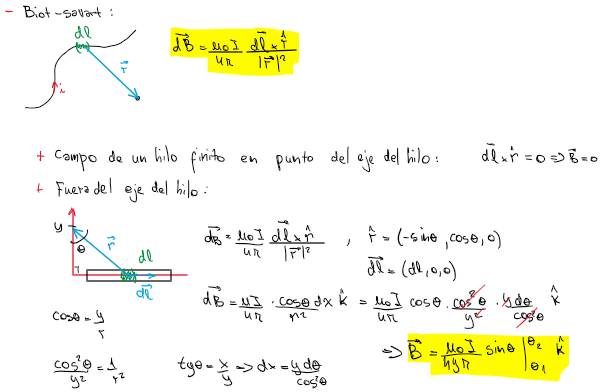 - Biot-savart:
dl
r⃗
i
dB⃗ = μ₀I/4π dl⃗ × r̂/|r⃗|²
+ Campo de un hilo finito en punto del eje del hilo: dl⃗ × r̂ = 0 => B⃗ = 0
+ Fuera del eje del hilo:
y
θ
r⃗
dl
dl⃗
dB⃗ = μ₀I/4π dl⃗ × r̂/|r⃗|² , r̂ = (-sinθ, cosθ, 0)
dl⃗ = (dl, 0, 0)
dB⃗ = μ₀I/4π · cosθ dx/r² k̂ = μ₀I/4π cosθ · cos²θ/y² · y dθ/cos²θ k̂
cosθ = y/r
cos²θ/y² = 1/r²
tgθ = x/y => dx = y dθ/cos²θ
=> B⃗ = μ₀I/4yπ sinθ |θ₂ θ₁ k̂